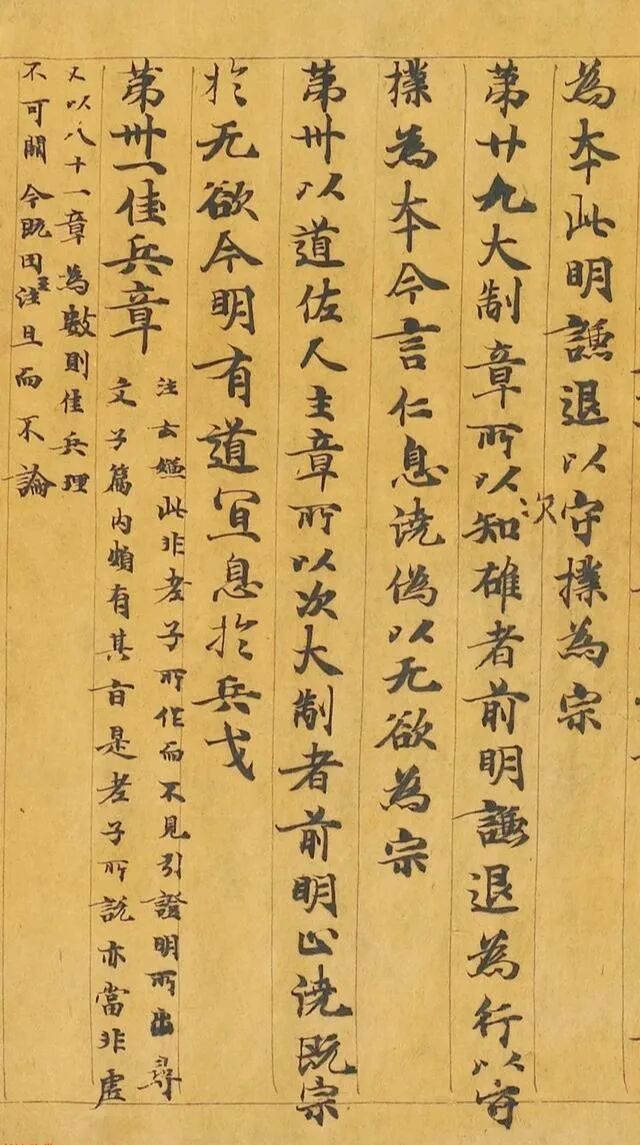 為夲此明謙退以守撲為宗
第廿九大制章所以次知雄者前明謙退為行以守
撲為夲今言仁息澆偽以无欲為宗
第卅以道佐人主章所以次大制者前明止澆既宗
於无欲今明有道冝息於兵戈
第卅一佳兵章
注云嫌此非老子所作而不見引證明所出尋
文子篇内頻有其旨是老子所說亦當非虛
又以八十一章為數則佳兵理
不可闕今既因王注且而不論